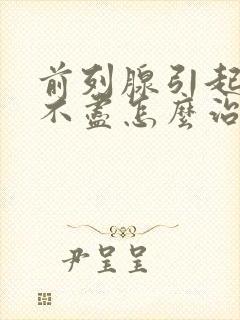 前列腺引起
不盡怎麼治
尹呈呈